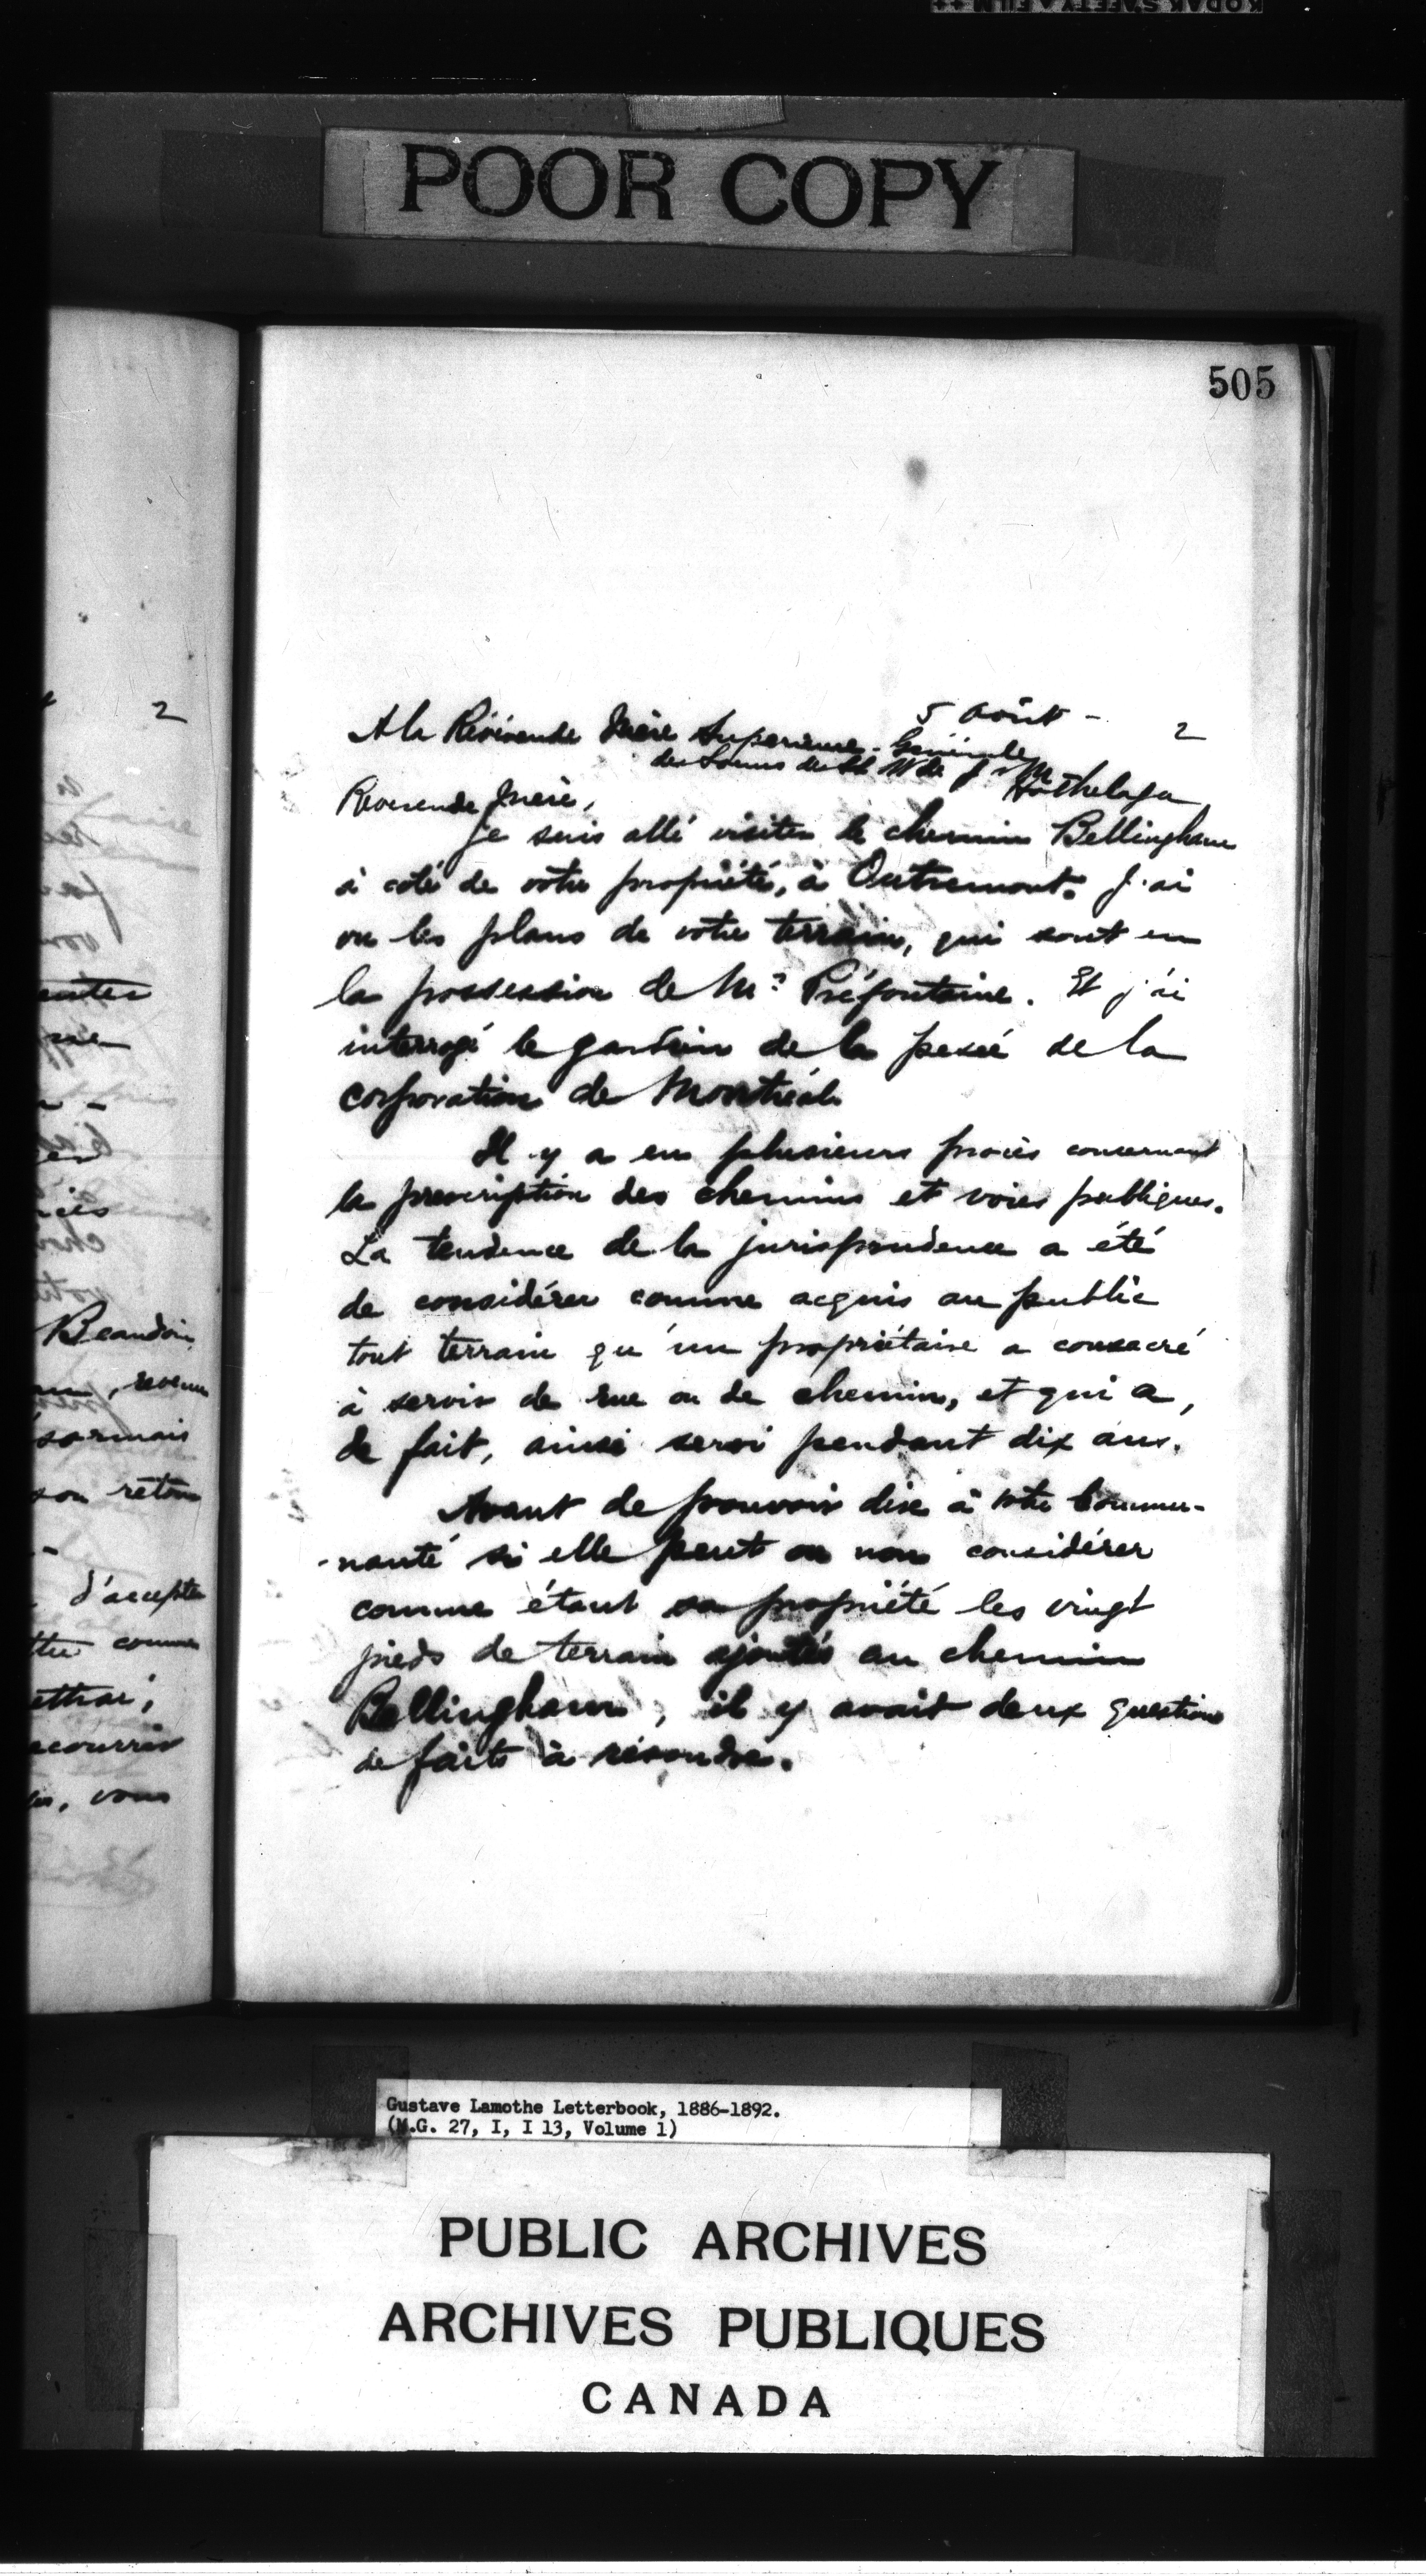 KODAK SAFETY FILM ++
POOR COPY
505
5 Août - 2
A la Révérende Mère Supérieure-Générale
des Soeurs des SS. N N de J & M
Hochelaga
Révérende Mère,
Je suis allé visiter le chemin Bellingham
à côté de votre propriété, à Outremont. J'ai
vu les plans de votre terrain, qui sont en
la possession de Mr Préfontaine. Et j'ai
interrogé le gardien de la pesée de la
corporation de Montréal.
Il y a eu plusieurs procès concernant
la prescription des chemins et voies publiques.
La tendence de la jurisprudence a été
de considérer comme acquis au public
tout terrain qu'un propriétaire a consacré
à servir de rue ou de chemin, et qui a,
de fait, ainsi servi pendant dix ans.
Avant de pouvoir dire à votre Commu-
-nauté si elle peut ou non considérer
comme étant sa propriété les vingt
pieds de terrain ajoutés au chemin
Bellingham, il y avait deux questions
de faits à résoudre.
2
Beaudoin
, revenu
son retour
d'accepter
comme
, vous
Gustave Lamothe Letterbook, 1886-1892.
(M.G. 27, I, I 13, Volume 1)
PUBLIC ARCHIVES
ARCHIVES PUBLIQUES
CANADA